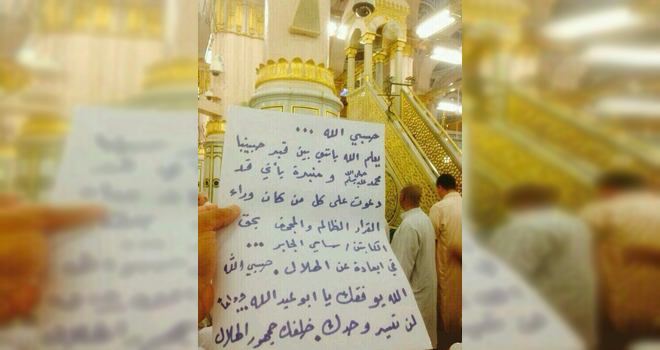 حسبي الله ...
يعلم الله يأنني بين قبر حبيبنا
محمد ﷺ ومنبره بأني قد
دعوت على كل من كان وراء
القرار الظالم والمجحف بحق
الكابتن / سامي الجابر ...
في ابعاده عن الهلال . حسبي الله
الله يوفقك يا ابو عبدالله
لن تسير وحدك . خلفك جمهور الهلال